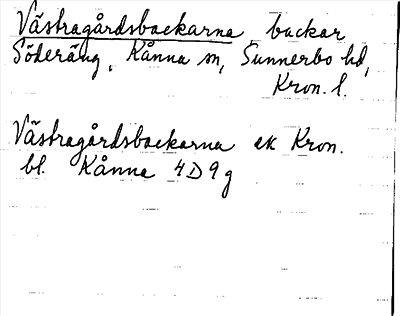 Västragårdsbackarna, backar
Söderäng, Kånna sn, Sunnerbo hd,
Kron. l.
Västragårdsbackarna ek Kron.
bl. Kånna 4D9g